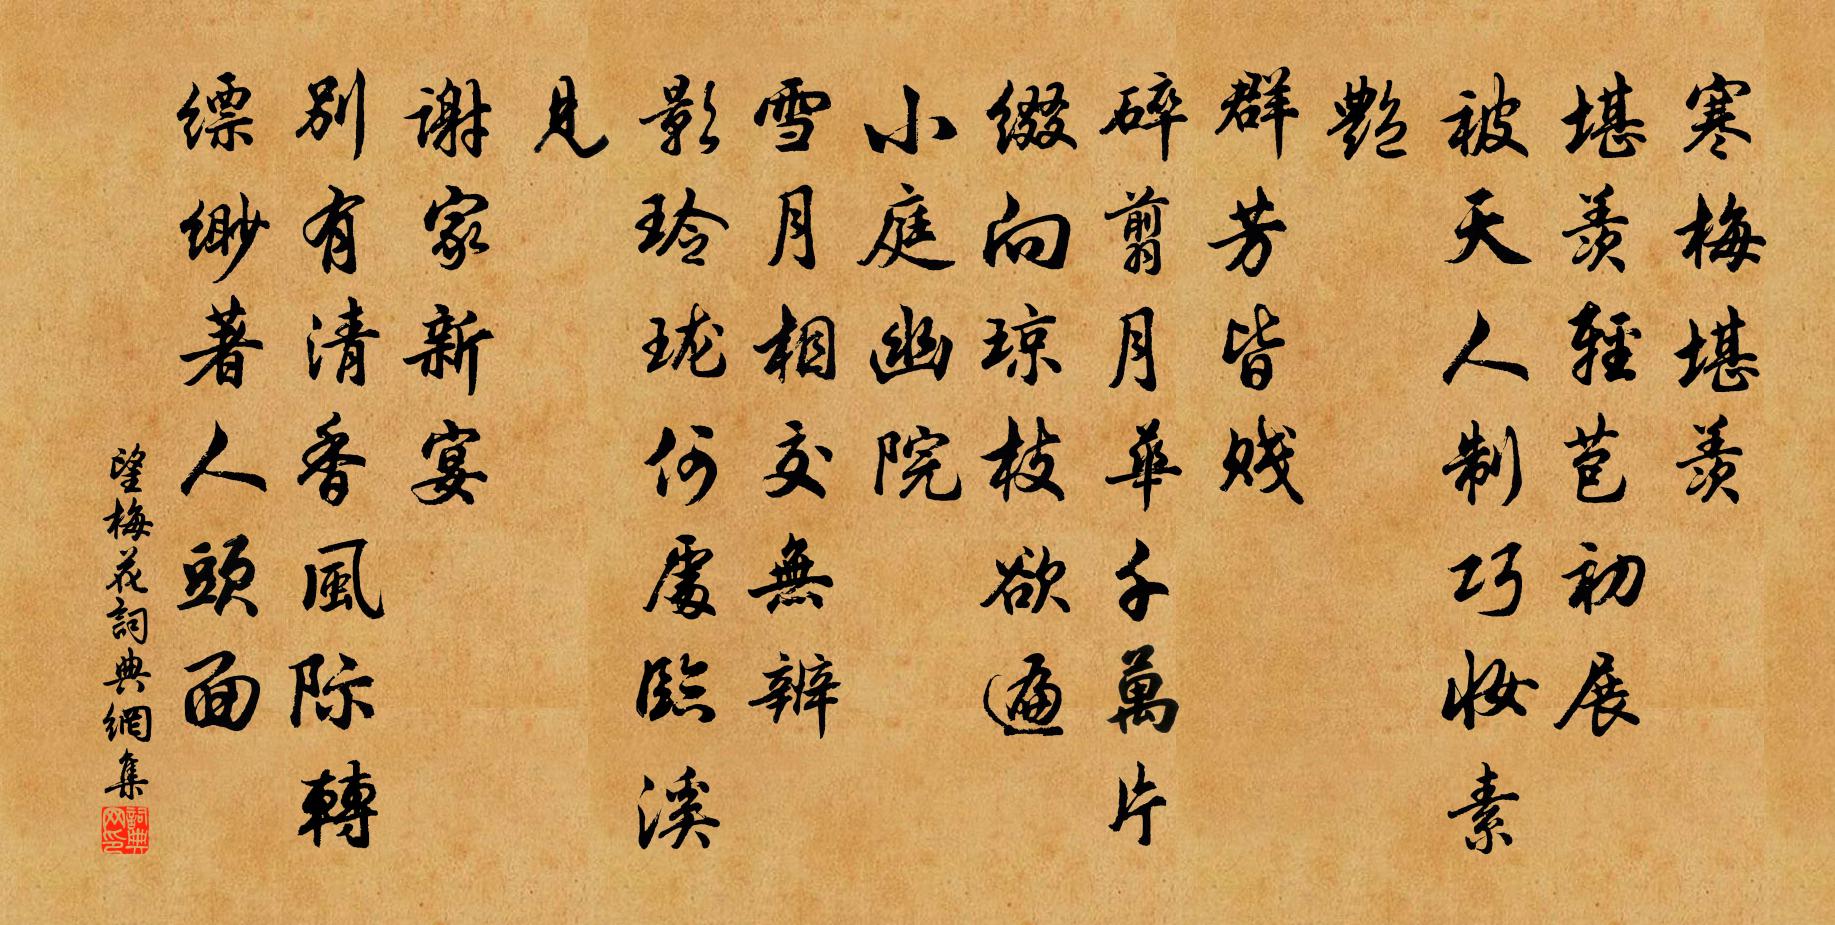 寒梅堪羨
堪羨輕苞初展
被天人制巧妝素
艷
群芳皆賤
碎翦月華千萬片
綴向瓊枝欲遍
小庭幽院
雪月相交無辨
影玲瓏何處臨溪
見
謝家新宴
別有清香風際轉
縹緲著人頭面
望梅花詞典網集
詞典網印